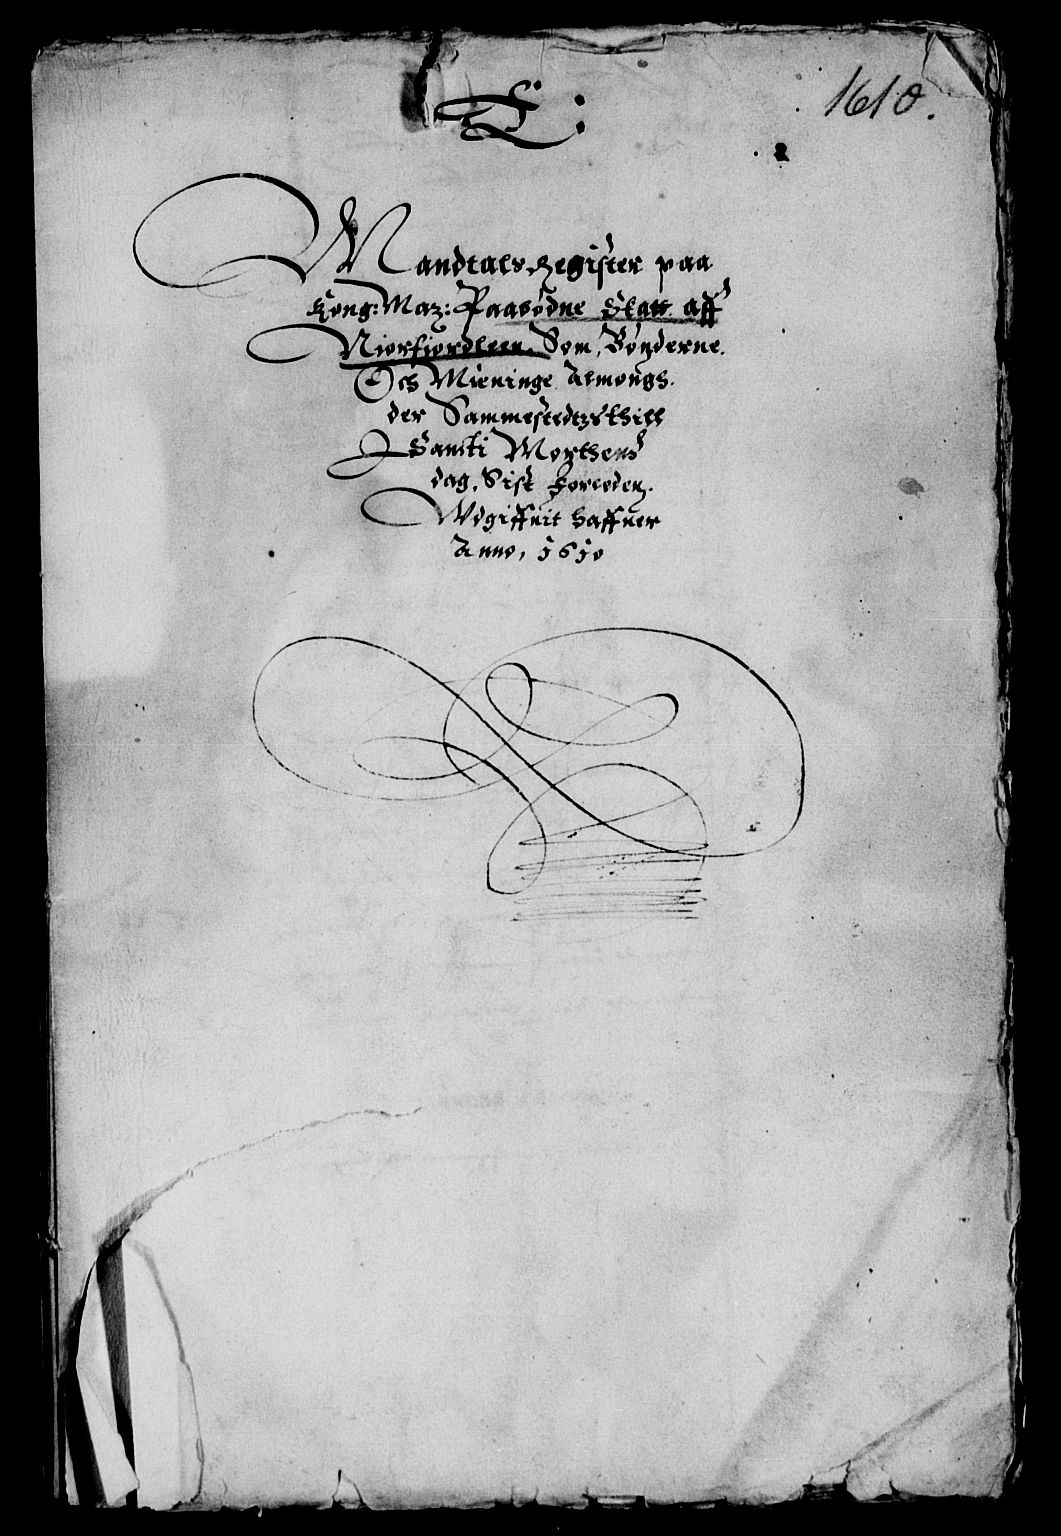 1610.
E:
Mandtals Register paa
Kong: Maz: Paabódne Skatt aff
Niorfiordleen, Som, Bónderne.
Och Mieninge Almongs.
der Sammestedtzs thill
Sancti Morthens
dag, Sist Forleden.
Wdgiffuit haffuer
Anno, 1610